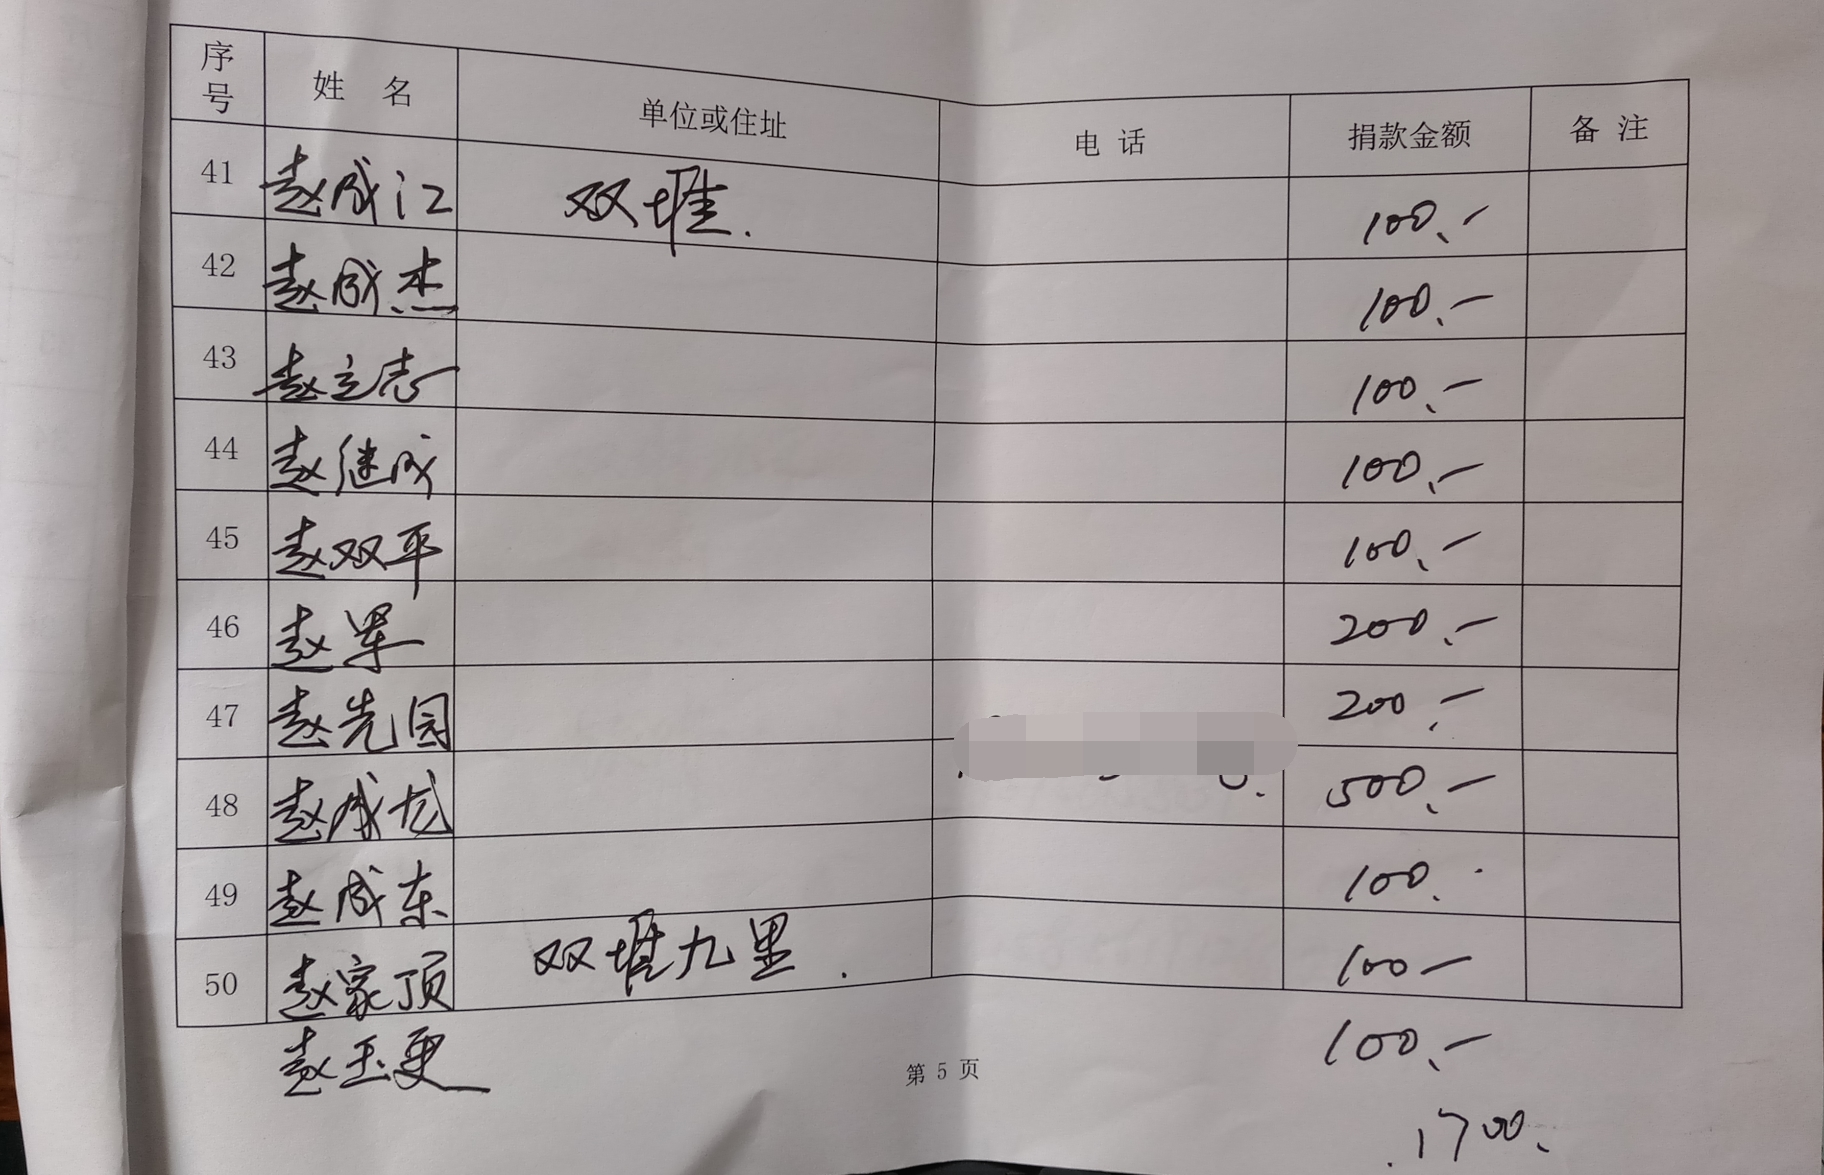 序号 姓 名 单位或住址 电 话 捐款金额 备 注
41 赵成江 双堆. 100.-
42 赵成杰 100.-
43 赵立志 100.-
44 赵继成 100.-
45 赵双平 100.-
46 赵军 200.-
47 赵先园 200.-
48 赵成龙 500.-
49 赵成东 100.
50 赵家顶 双堆九里. 100-
赵玉更 100.-
第 5 页
1700.